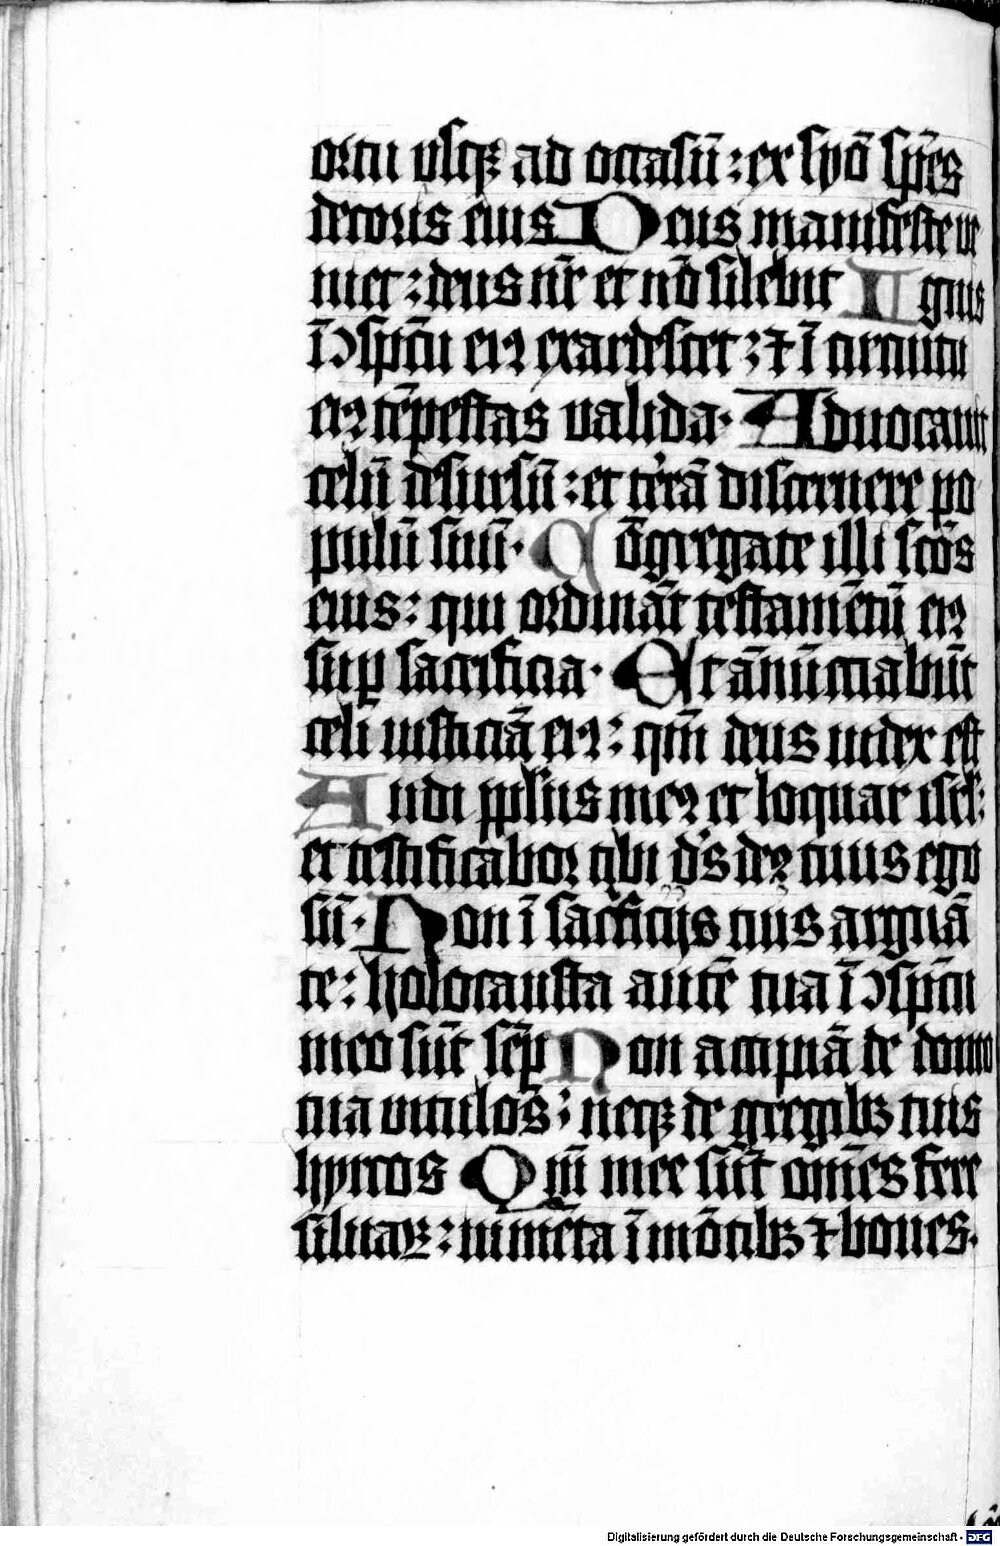 ortu vsqꝫ ad occasū : ex syō sp̄es
decoris eius Deus manifeste ve
niet : deus nr̄ et nō silebit Ignis
ī ↄsp̄cu eiꝰ exardescet : ⁊ ī circuitu
eiꝰ tēpestas valida · Aduocauit
celū desursū : et t̄rā discernere po
pulū suū · Cōgregate illi scōs
eius : qui ordināt testamētū eiꝰ
suꝑ sacrificia · Et ānūcciabūt
celi iusticiā eiꝰ : qm̄ deus iudex est
Audi pplus̄ meꝰ et loquar isrl̄ :
et testificabor tibi d's deꝰ tuus ego
sū · Non ī sac'ficijs tuis arguā
te : holocausta autē tua ī ↄsp̄cu
meo sūt sēꝑ Non accipiā de domo
tua vitulos : neqꝫ de gregibꝫ tuis
hyrcos Qm̄ mee sūt om̄es fere
siluaꝝ : iumēta ī mōtibꝫ ⁊ boues ·
Digitalisierung gefördert durch die Deutsche Forschungsgemeinschaft - DFG